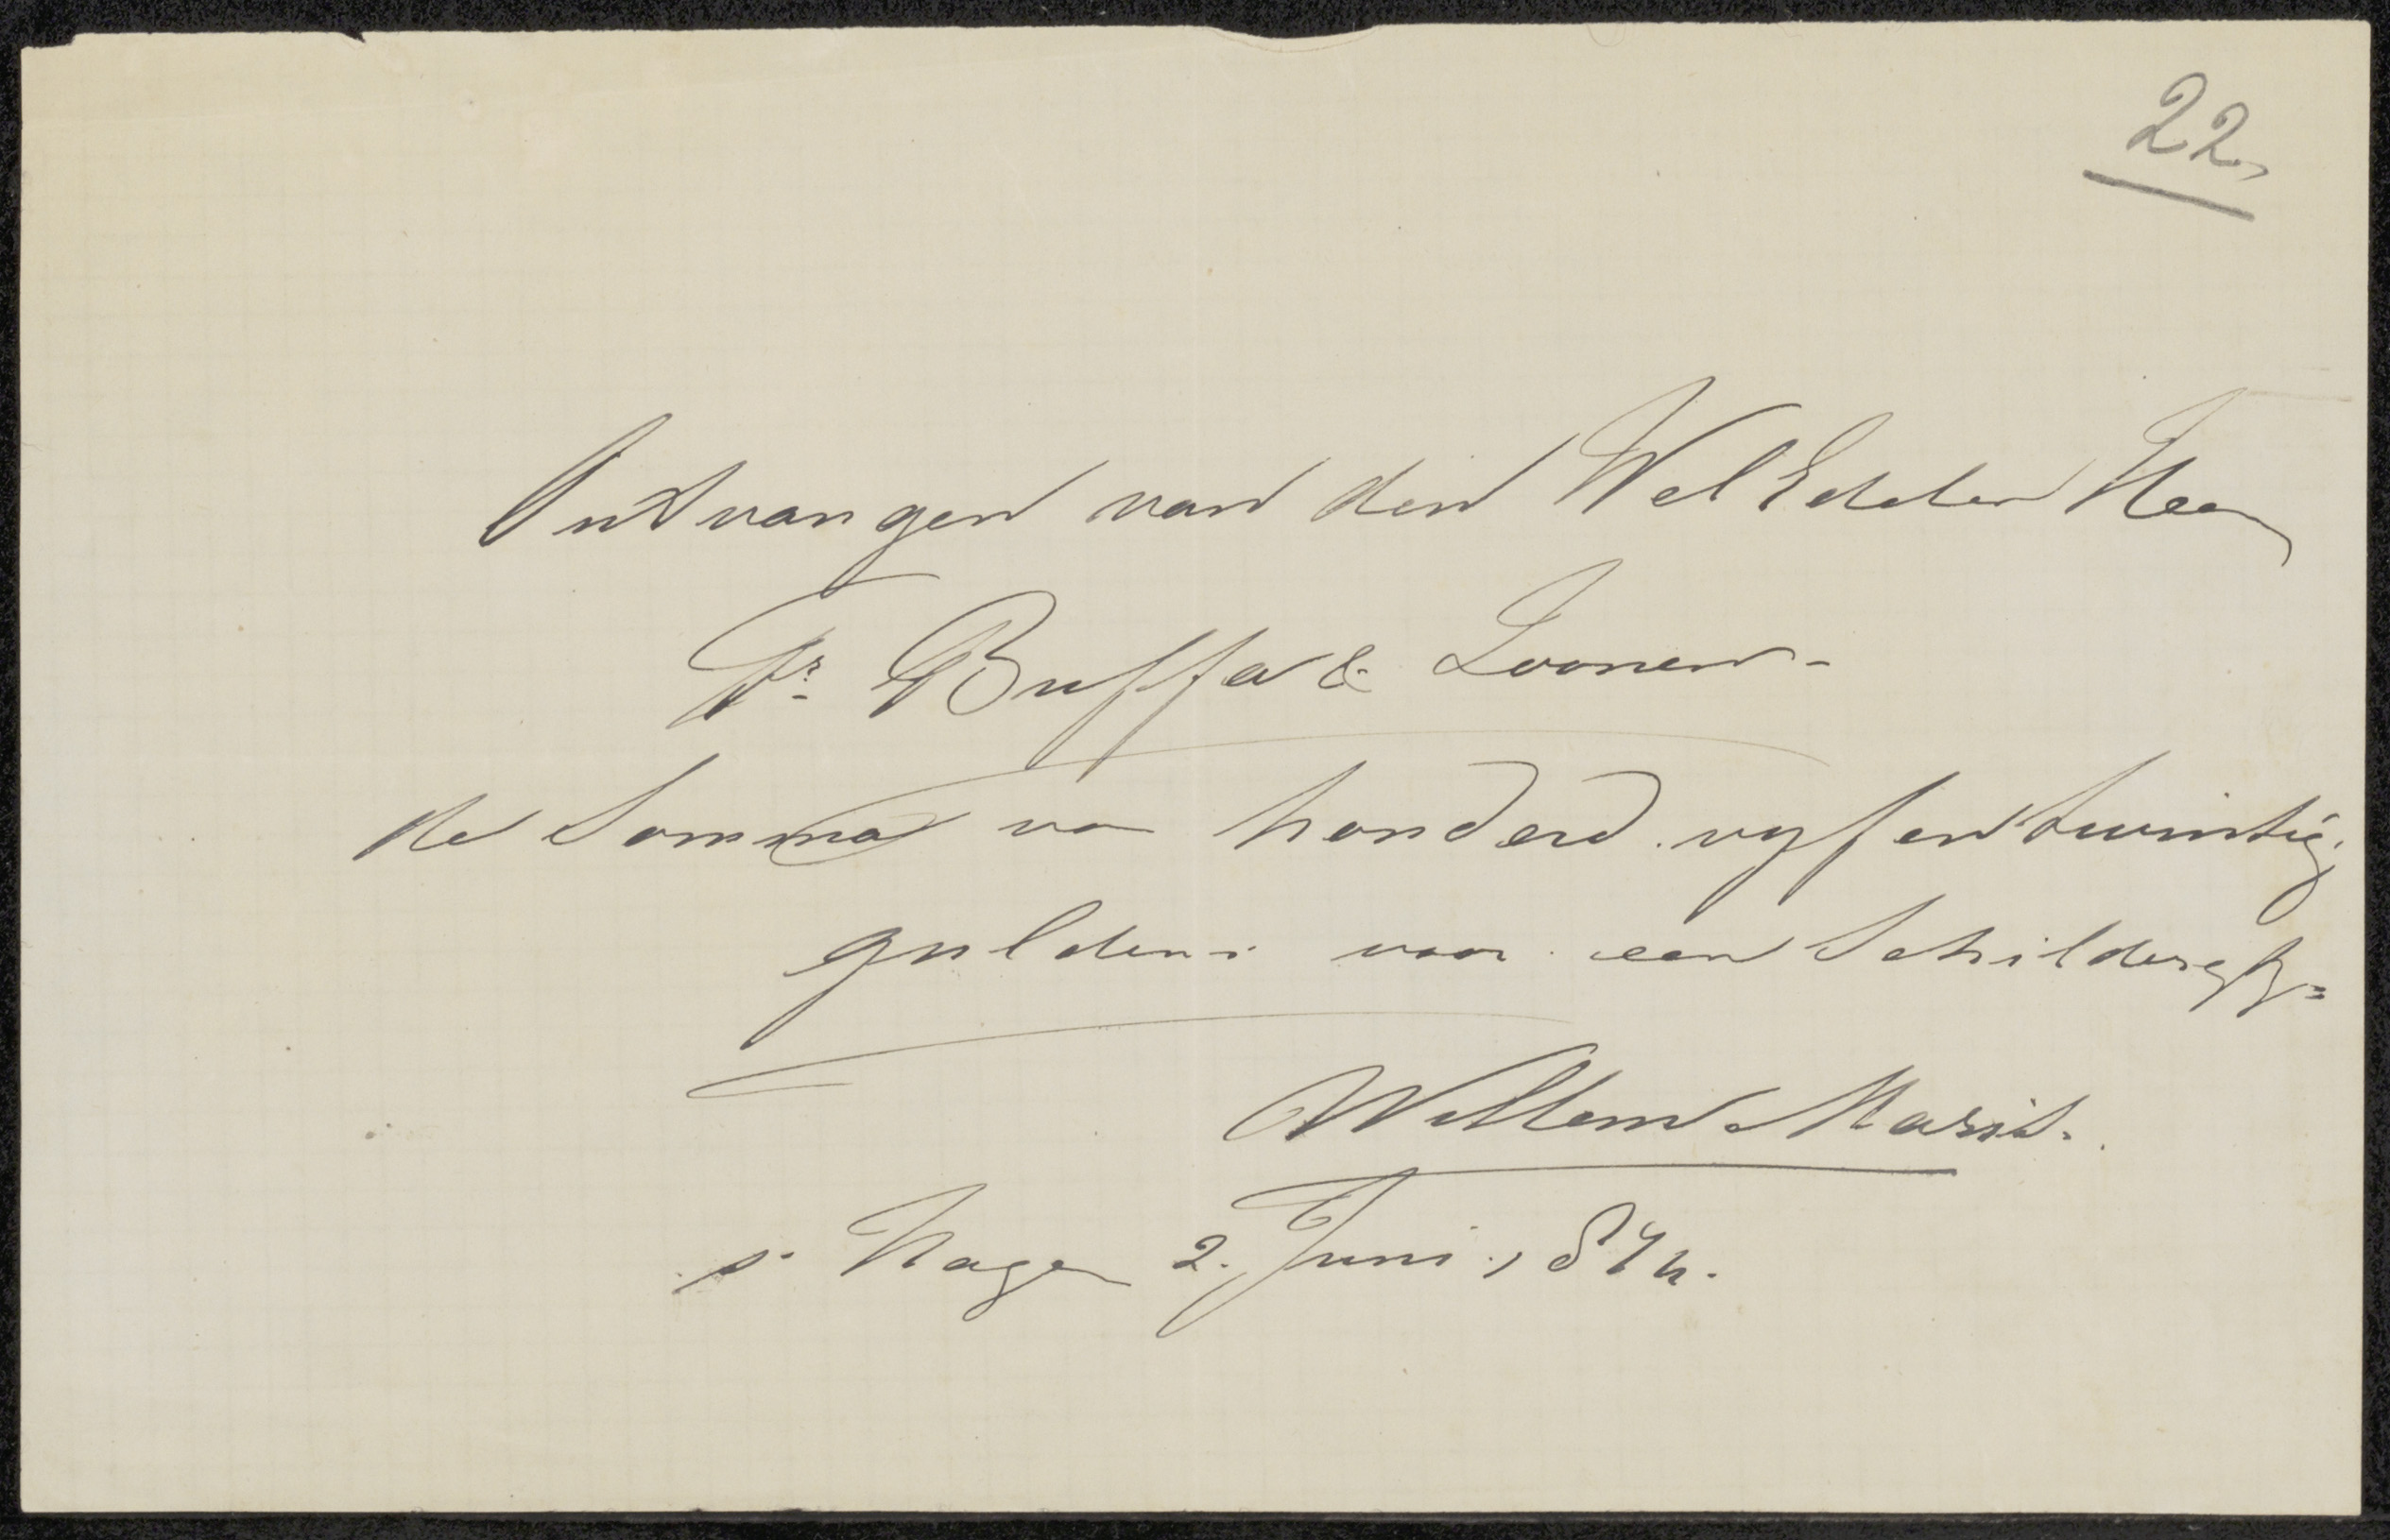 22,
Ontvangen van den Wel Edelen Heer
Fr. Buffa & Zoonen -
de Somma van honderd vyf en twintig
guldens voor een Schildery =
Willem Maris.
s. Hage 2. Juni. 1874.